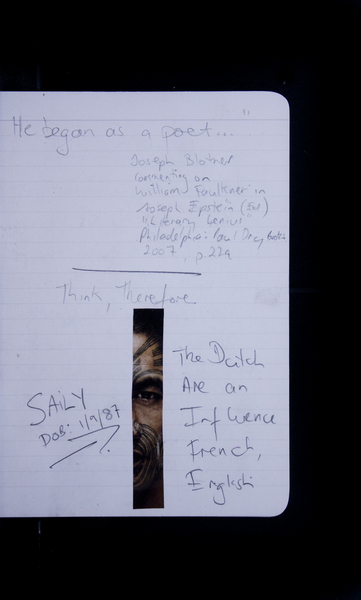 He began as a poet..."
Joseph Blotner
commenting on
William Faulkner in
Joseph Epstein (Ed)
"Literary Genius"
Philadelphia: Paul Dry Books
2007, p.229
Think, Therefore
The Dutch
Are an
Influence
French,
English
SAILY
DOB: 1/9/87